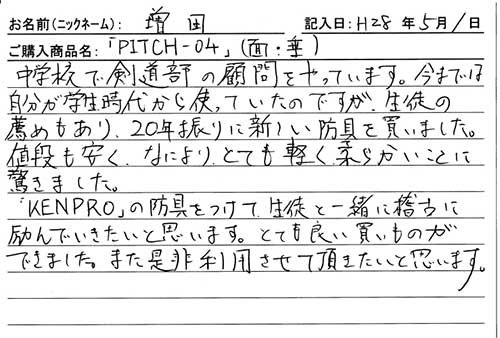 お名前(ニックネーム): 増田 記入日:H28年5月1日
ご購入商品名:「PITCH-04」(面・垂)
中学校で剣道部の顧問をやっています。今までは
自分が学生時代から使っていたのですが、生徒の
薦めもあり、20年振りに新しい防具を買いました。
値段も安く、なにより、とても軽く柔らかいことに
驚きました。
「KENPRO」の防具をつけて、生徒と一緒に稽古に
励んでいきたいと思います。とても良い買いものが
できました。また是非利用させて頂きたいと思います。